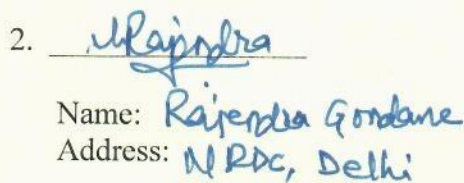 2. Rajendra
Name: Rajendra Gondane
Address: NRDC, Delhi